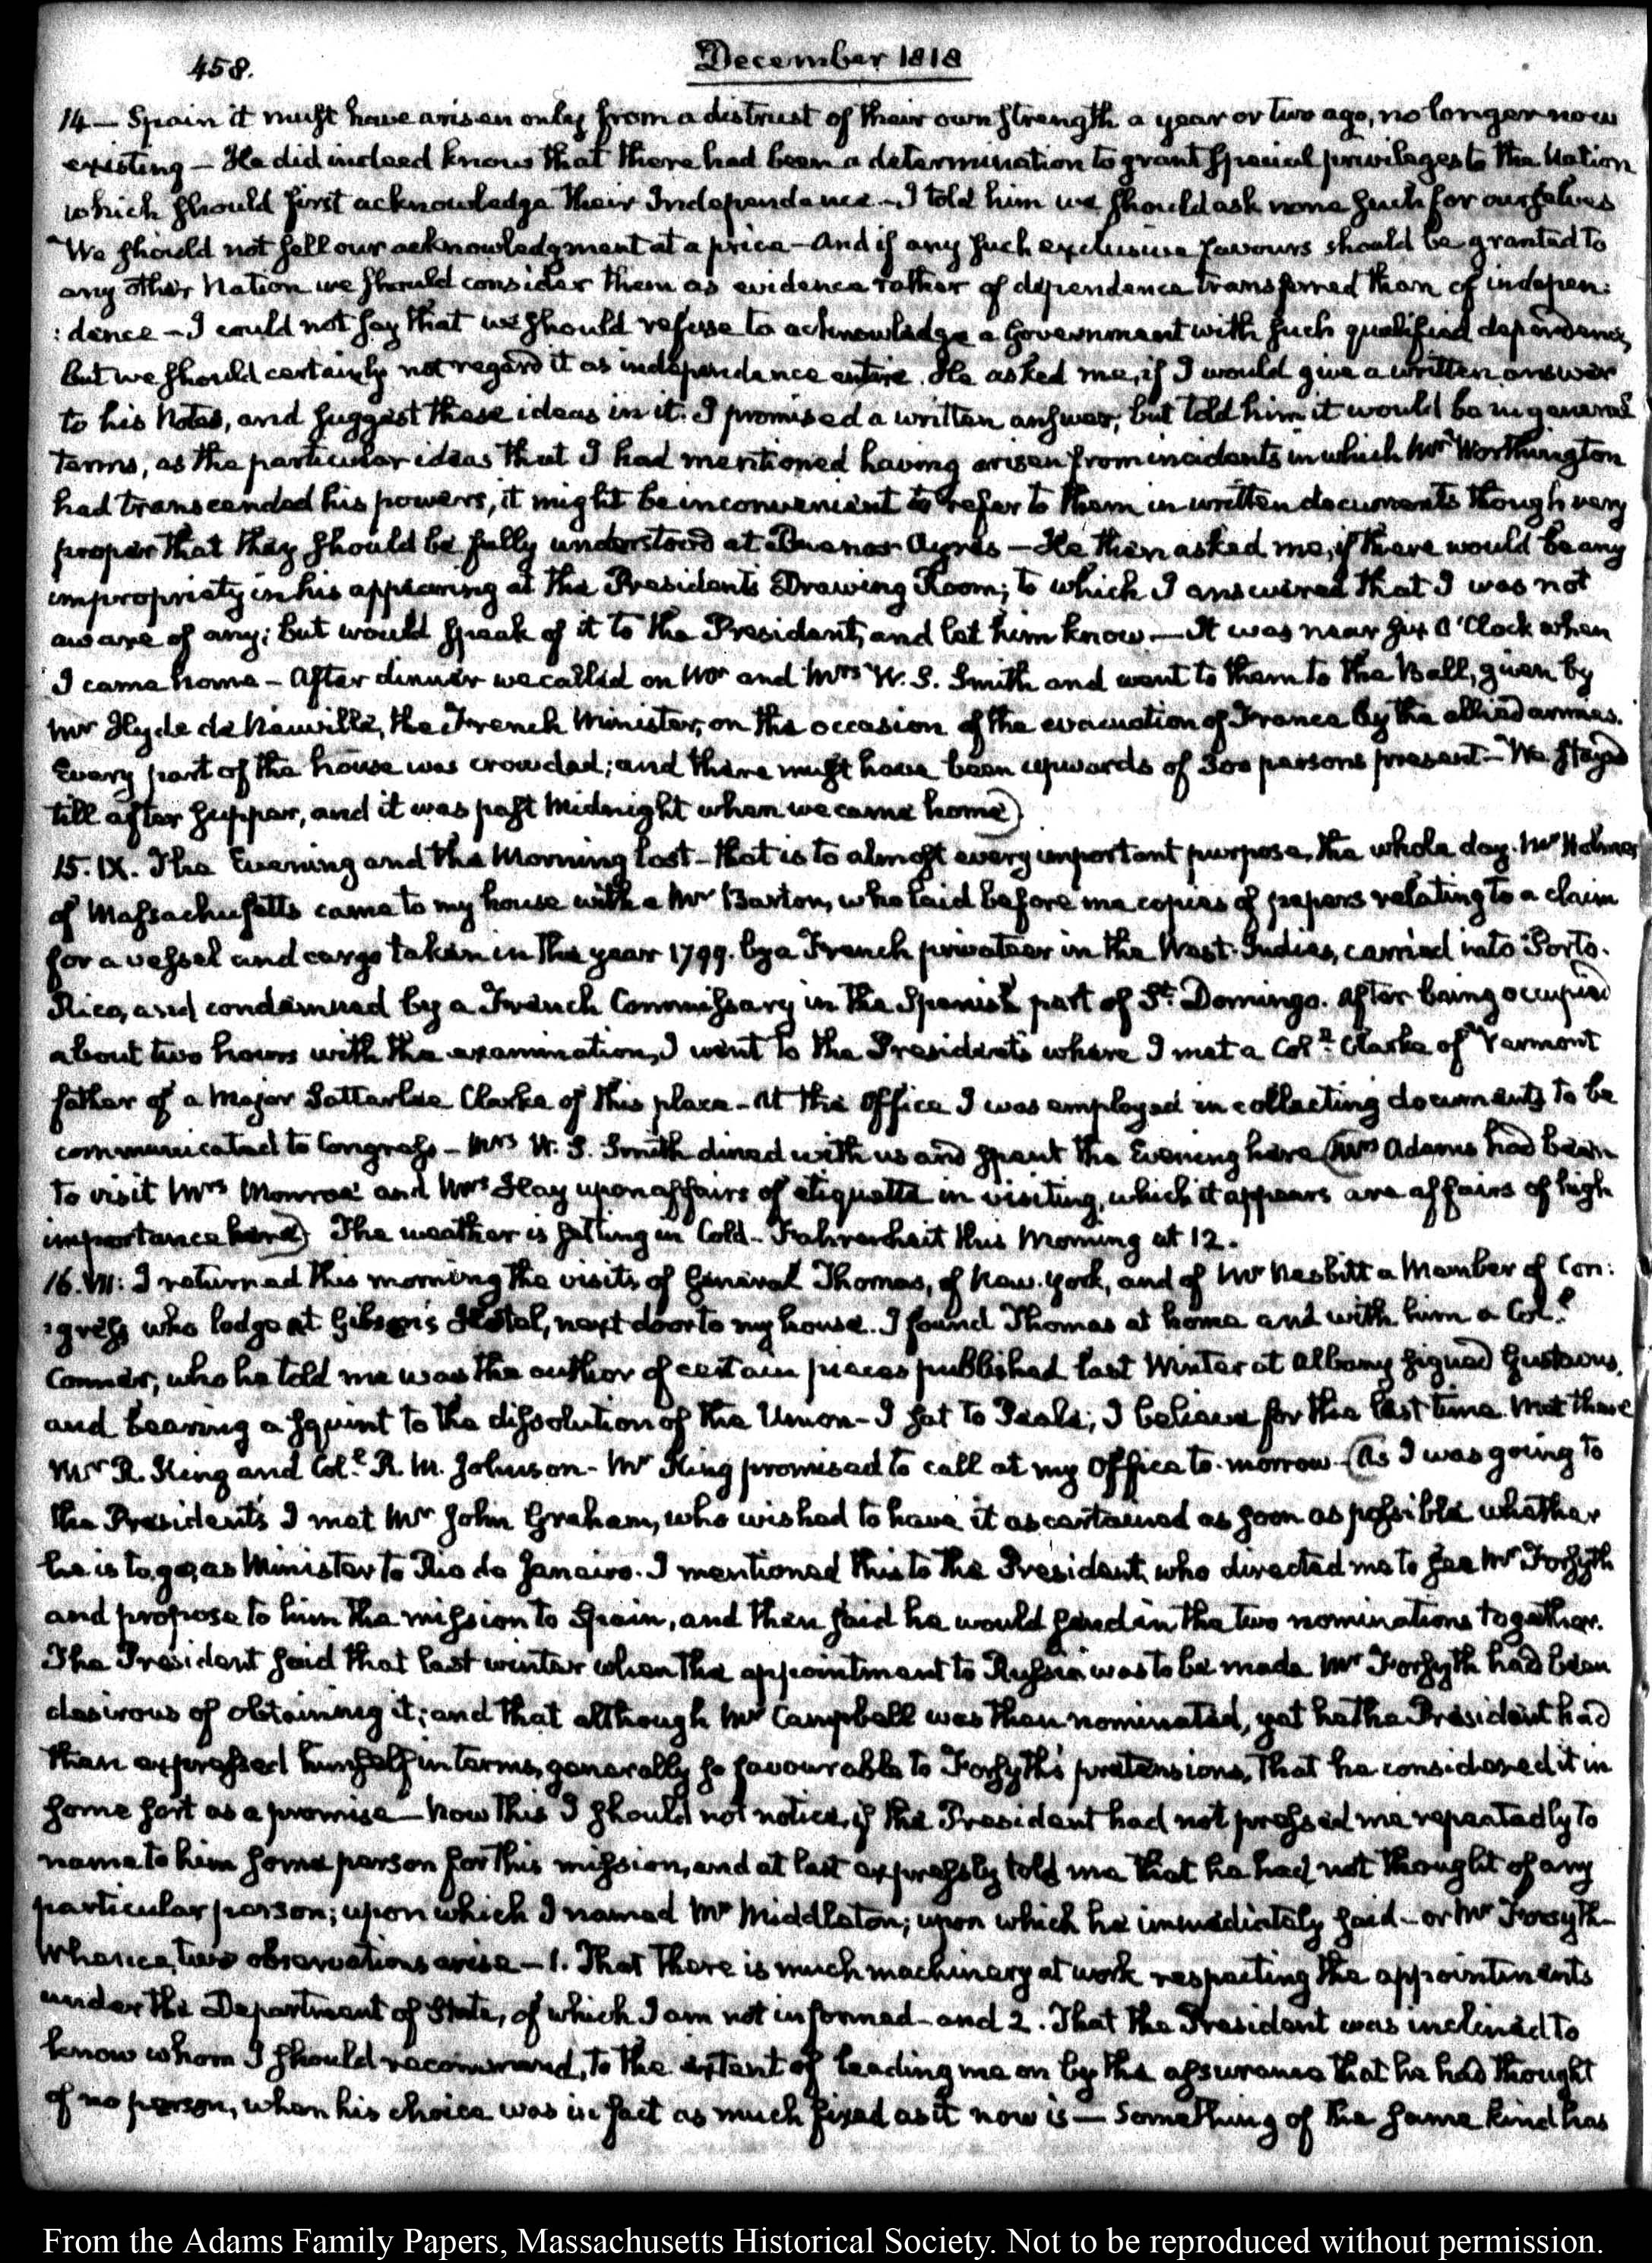 458.
December 1818
14 — Spain it must have arisen only from a distrust of their own strength a year or two ago, no longer now
existing — He did indeed know that there had been a determination to grant special privileges to the Nation
which should first acknowledge their Independence — I told him we should ask none such for ourselves
We should not sell our acknowledgment at a price — And if any such exclusive favours should be granted to
any other Nation we should consider them as evidence rather of dependence transferred than of indepen:
:dence — I could not say that we should refuse to acknowledge a Government with such qualified dependence,
but we should certainly not regard it as independence entire. He asked me, if I would give a written answer
to his Notes, and suggest these ideas in it. I promised a written answer, but told him it would be in general
terms, as the particular ideas that I had mentioned having arisen from incidents in which Mr Worthington
had transcended his powers, it might be inconvenient to refer to them in written documents though very
proper that they should be fully understood at Buenos Ayres — He then asked me, if there would be any
impropriety in his appearing at the Presidents Drawing Room; to which I answered that I was not
aware of any; but would speak of it to the President, and let him know. — It was near six O'Clock when
I came home — After dinner we called on Mr and Mrs W. S. Smith and went to them to the Ball, given by
Mr Hyde de Neuville, the French Minister, on the occasion of the evacuation of France by the allied armies.
Every part of the house was crowded; and there must have been upwards of 300 persons present — We stayed
till after supper, and it was past Midnight when we came home)
15. IX. The Evening and the Morning lost — that is to almost every important purpose, the whole day. Mr Holmes
of Massachusetts came to my house with a Mr Barton, who laid before me copies of papers relating to a claim
for a vessel and cargo taken in the year 1799. by a French privateer in the West-Indies, carried into Porto-
Rico, and condemned by a French Commissary in the Spanish part of St Domingo. After being occupied
about two hours with the examination, I went to the President's where I met a Coll Clarke of Vermont
father of a Major Satterlee Clarke of this place — At the Office I was employed in collecting documents to be
communicated to Congress — Mrs W. S. Smith dined with us and spent the Evening here (Mrs Adams had been
to visit Mrs Monroe and Mrs Hay upon affairs of etiquette in visiting, which it appears are affairs of high
importance here) The weather is setting in Cold — Fahrenheit this Morning at 12.
16. VII: I returned this morning the visits of General Thomas, of New-York, and of Mr Nesbitt a Member of Con:
:gress who lodge at Gibson's Hotel, next door to my house. I found Thomas at home and with him a Coll
Conner, who he told me was the author of certain pieces published last Winter at Albany signed Gustavus,
and bearing a squint to the dissolution of the Union — I sat to Peale; I believe for the last time. Met there
Mr R. King and Coll R. M. Johnson — Mr King promised to call at my Office to-morrow — (As I was going to
the President's I met Mr John Graham, who wished to have it ascertained as soon as possible whether
he is to go, as Minister to Rio de Janeiro. I mentioned this to the President, who directed me to see Mr Forsyth
and propose to him the mission to Spain, and then said he would send in the two nominations together.
The President said that last winter when the appointment to Russia was to be made Mr Forsyth had been
desirous of obtaining it; and that although Mr Campbell was then nominated, yet he the President had
then expressed himself in terms, generally so favourable to Forsyth's pretensions, that he considered it in
some sort as a promise — Now this I should not notice, if the President had not pressed me repeatedly to
name to him some person for this mission, and at last expressly told me that he had not thought of any
particular person; upon which I named Mr Middleton; upon which he immediately said — or Mr Forsyth —
Whence, two observations arise — 1. That there is much machinery at work respecting the appointments
under the Department of State, of which I am not informed — and 2. That the President was inclined to
know whom I should recommend, to the extent of leading me on by the assurance that he had thought
of no person, when his choice was in fact as much fixed as it now is — Something of the same kind has
From the Adams Family Papers, Massachusetts Historical Society. Not to be reproduced without permission.